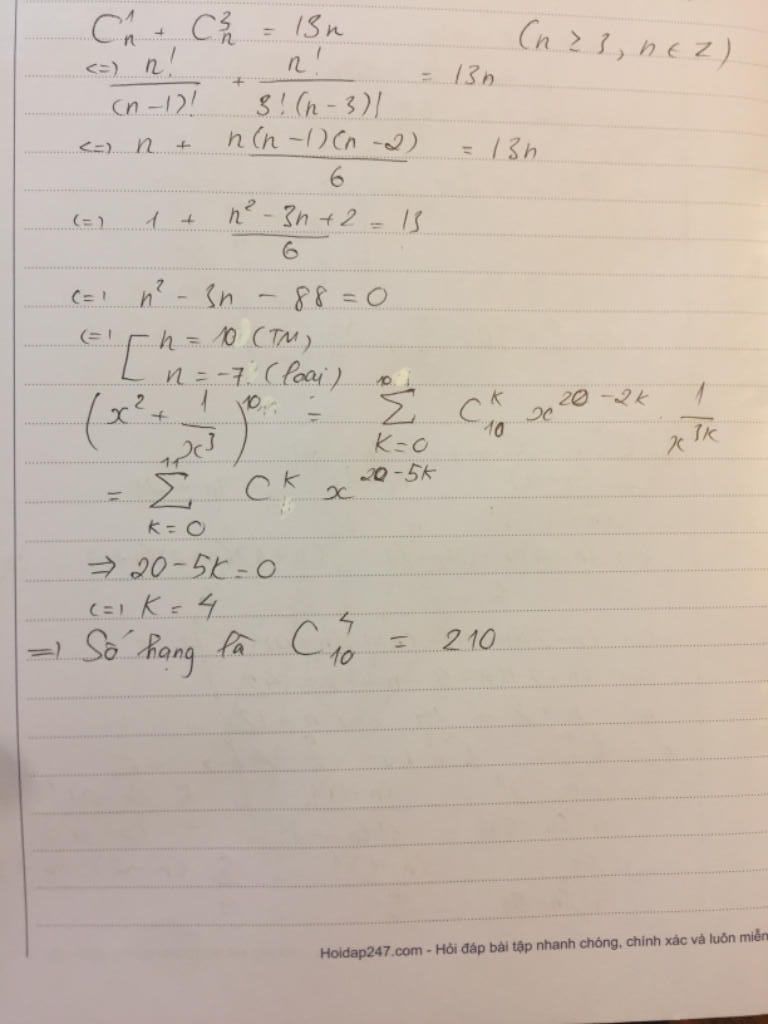 C¹ₙ + C³ₙ = 13n (n ≥ 3, n ∈ Z)
<=> n!/(n-1)! + n!/3!(n-3)! = 13n
<=> n + n(n-1)(n-2)/6 = 13n
<=> 1 + n² - 3n + 2/6 = 13
<=> n² - 3n - 88 = 0
<=> [ n = 10 (TM)
n = -7 (loại)
(x² + 1/x³)¹⁰ = Σ 10 K=0 C^K_10 x^20-2K . 1/x^3K
= Σ 11 K=0 C^K x^20-5K
=> 20-5K=0
<=> K = 4
=> Số hạng là C⁴₁₀ = 210
Hoidap247.com - Hỏi đáp bài tập nhanh chóng, chính xác và luôn miễn